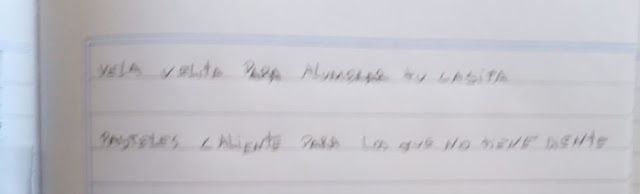 VELA VELITA PARA ALUMBRAR TU CASITA
PASTELES CALIENTE PARA LOS QUE NO TIENE DIENTE